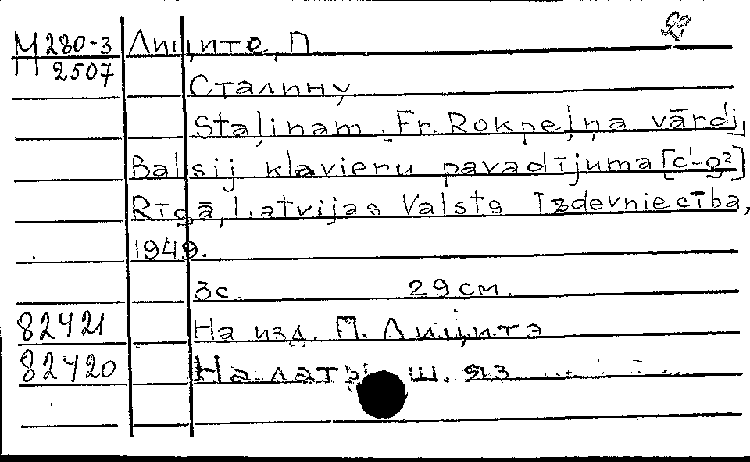 М 280-3 Лиците, П.
2507
Сталину
Staļinam. Fr. Rokpeļņa vārdi,
Balsij klavieru pavadījumā [c'-g²]
Rīgā, Latvijas Valsts Izdevniecība,
1949.
3с. 29см.
82421 На изд. П. Лицитэ
82420 На латыш. яз